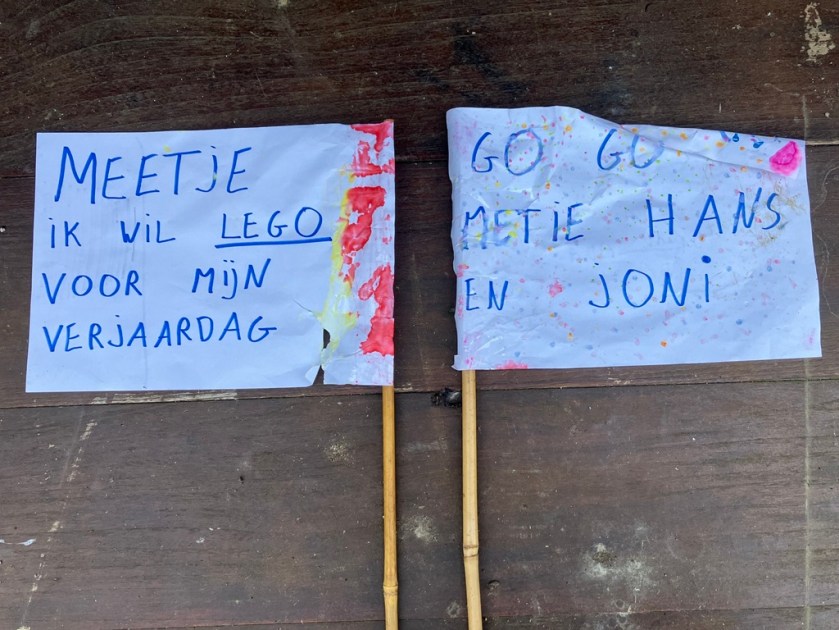 MEETJE
IK WIL LEGO
VOOR MIJN
VERJAARDAG
GO GO
METIE HANS
EN JONI